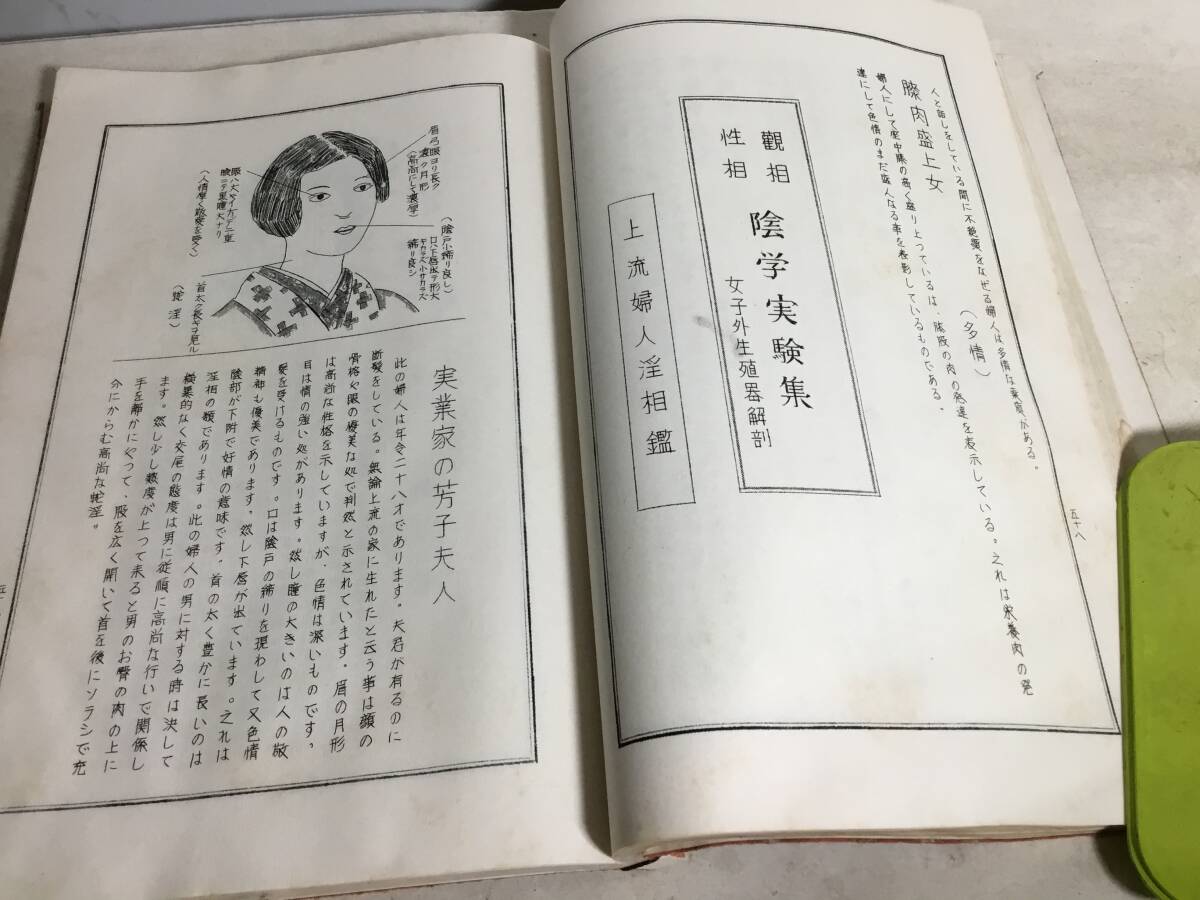 人と話しをしている間に不絶鬢をなぜる婦人は多情な素質がある。
(多情)
膝肉盛上女
婦人にして座中膝の高く盛り上っているは、陰股の肉の発達を表示している。之れは栄養肉の発
達にして色情のまだ盛んなる事を表彰しているものである。
觀相
性相
陰学実験集
女子外生殖器解剖
上流婦人淫相鑑
五十八
眉弓眼ヨリ長ク
濃ク月形
(高尚にして濃厚)
(陰戸小締り良し)
口ハ下唇出テ形大
キカラズ小サカラズ
締り良シ
(人情厚く敬愛を受く)
首太ク長ヤヤ肥ル
(蛇淫)
実業家の芳子夫人
此の婦人は年令二十八才であります。夫君が有るのに
断髪をしている。無論上流の家に生れたと云う事は顔の
骨格や眼の優美な処で判然と示されています。眉の月形
は高尚な性格を示していますが、色情は深いものです。
目は情の強い処があります。然し瞳の大きいのは人の敬
愛を受けるものです。口は陰戸の締りを現わして又色情
情部も優美であります。然し下唇が出ています。之れは
陰部が下附で好情の意味です。首の太く豊かに長いのは
淫相の類であります。此の婦人の男に対する時は決して
横暴的なく交尾の態度は男に従順に高尚な行いで関係し
ます。然し少し熱度が上って来ると男のお臀の肉の上に
手を静かにやって、股を広く開いて首を後にソラシで充
分にからむ高尚な蛇淫。